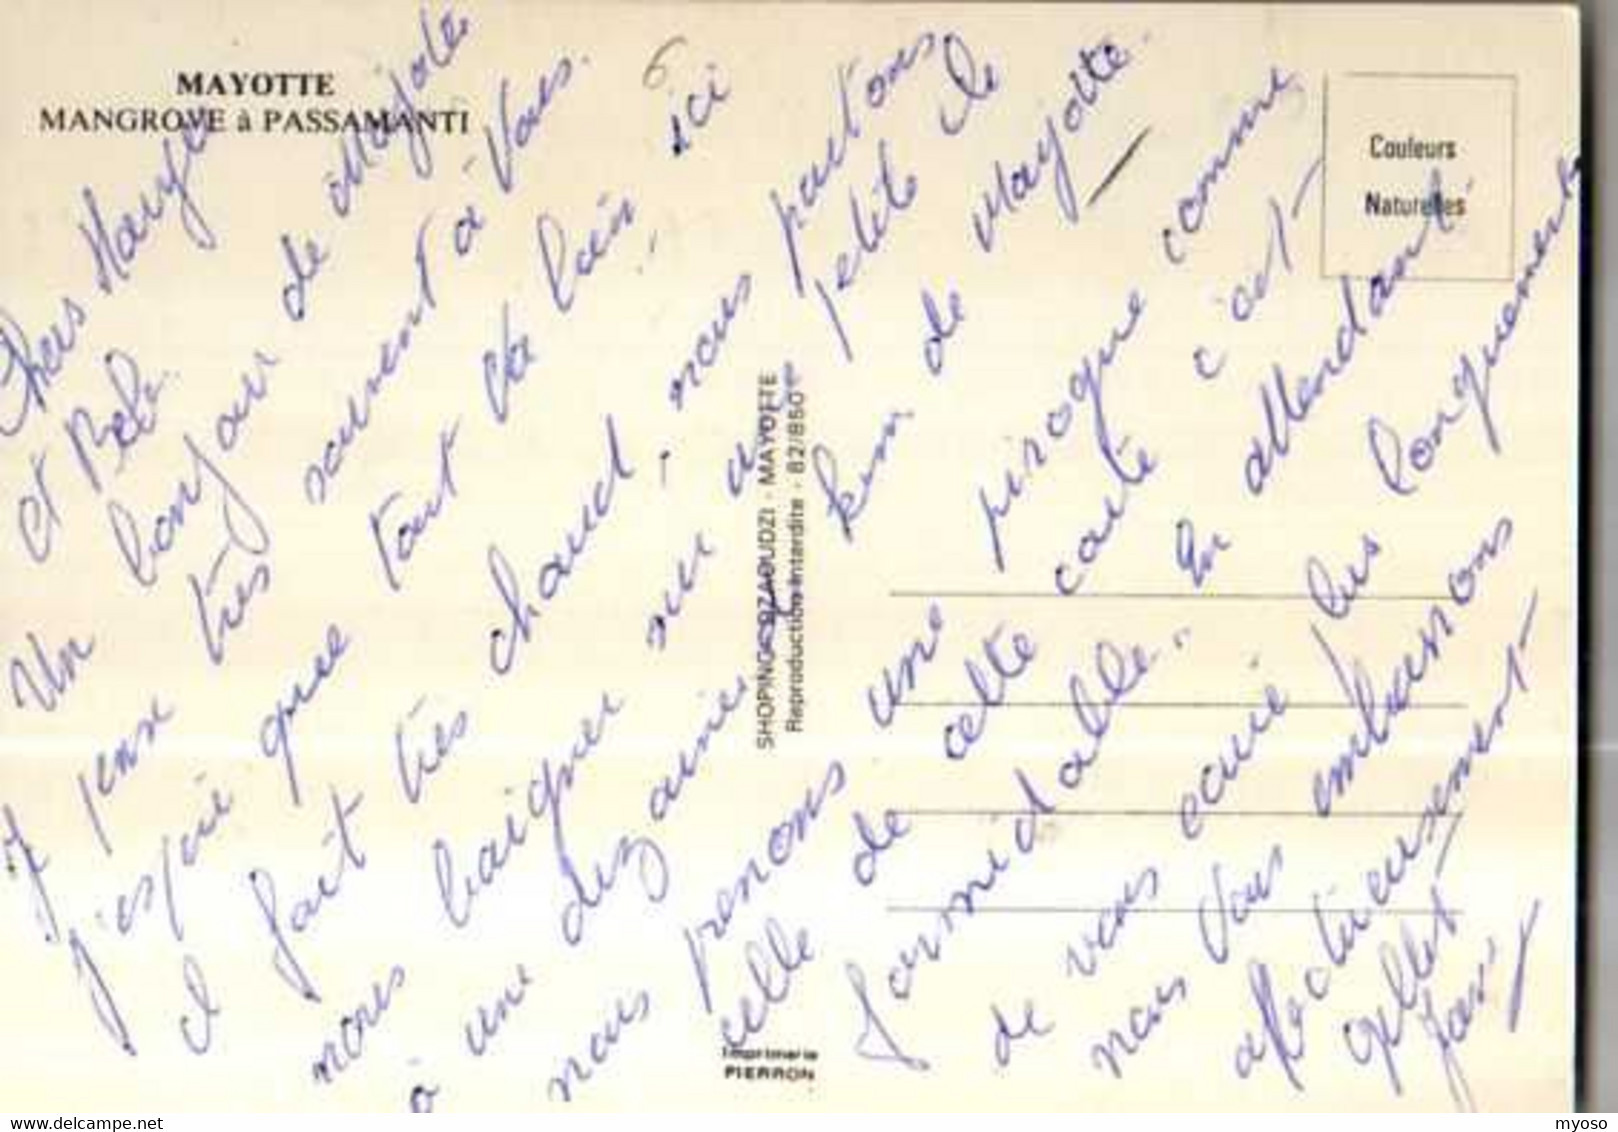 MAYOTTE
MANGROVE à PASSAMANTI
Couleurs
Naturelles
SHOPING DZAOUDZI - MAYOTTE
Reproduction interdite - 82/850
Imprimerie
PIERRON
6
Chers
et Bebe.
Un bonjour de Majote
Je pense très souvent à Vous.
j'espère que tout va bien. ici
il fait très chaud, nous partons
nous baigner sur une petite ile
à une dizaine km de Mayotte.
nous prenons une pirogue comme
celle de cette carte c'est
formidable. En attendant
de vous ecrire plus longuement
nous Vous embrassons
affectueusement